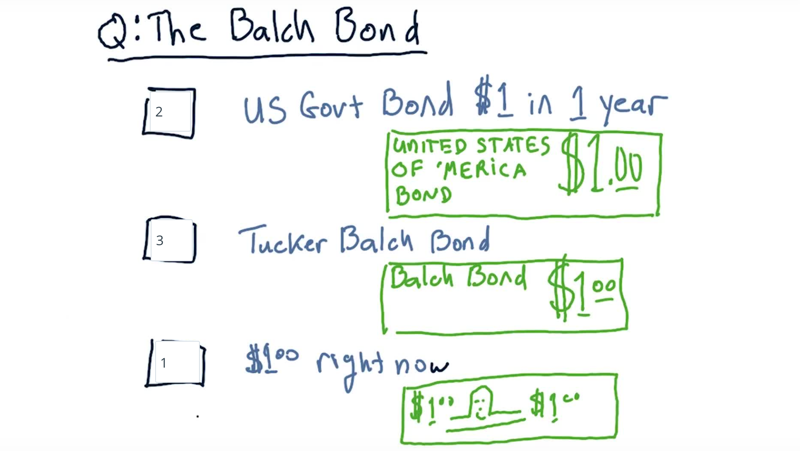 Q: The Balch Bond
2
US Govt Bond $1 in 1 year
UNITED STATES
OF 'MERICA
BOND
$1.00
3
Tucker Balch Bond
Balch Bond $1 00
1
$1 00 right now
$1 00 $1 00